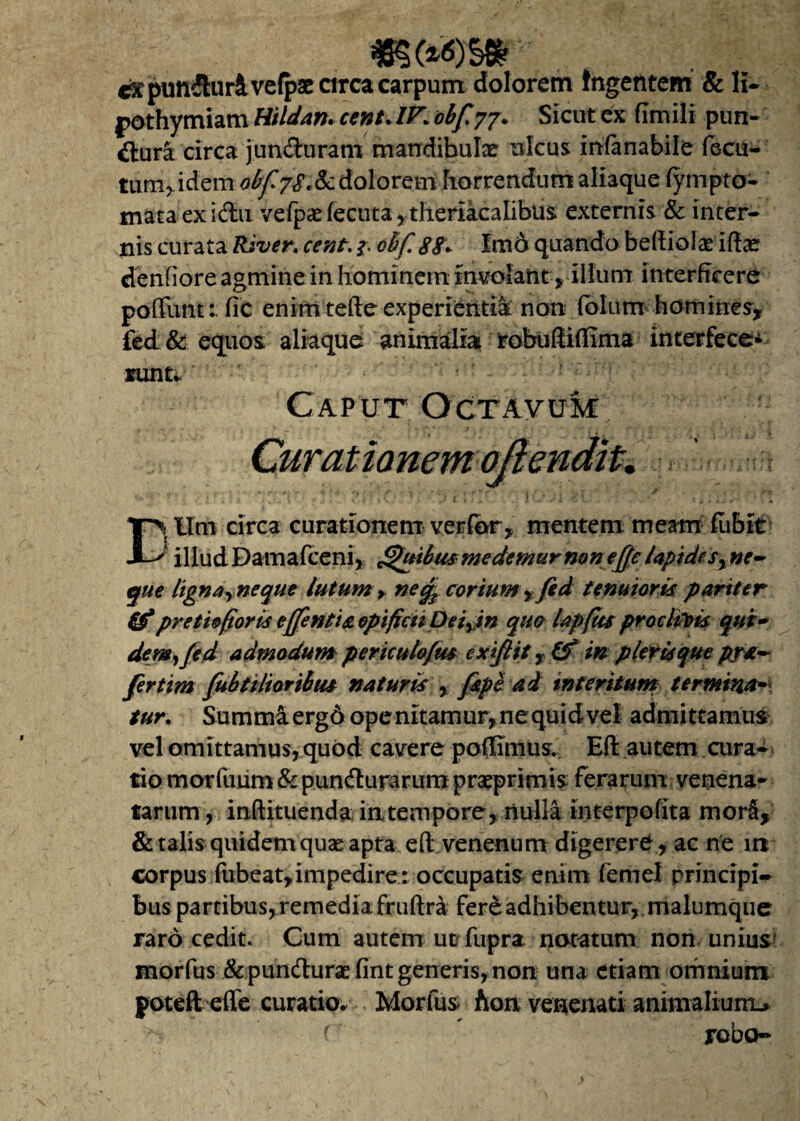 (26)
ex puncturâ vespæ circa carpum dolorem ingentem & li-
pothymiam Hildan. cent. IV. obs. 77. Sicut ex simili pun-
ctura circa juncturam mandibulæ ulcus insanabile secu-
tum, idem obs. 78. & dolorem horrendum aliaque sympto-
mata ex ictu vespæ secuta, theriacalibus externis & inter-
nis curata River. cent. 3. obs. 88. Imò quando bestiolæ istæ
densiore agmine in hominem involant, illum interficere
possunt: sic enim teste experientiâ non solum homines,
sed & equos aliaque animalia robustissima interfece-
runt.
CAPUT OCTAVUM
Curationem ostendit.
DUm circa curationem versor, mentem meam subit
illud Damasceni, Quibus medemur non esse lapides, ne-
que ligna, neque lutum, neq; corium, sed tenuioris pariter
& pretiosioris essentiæ opificii Dei, in quo lapsus proclivis qui-
dem, sed admodum periculosus existit, & in plerisque præ-
sertim subtilioribus naturis, sæpè ad interitum termina-
tur. Summâ ergò ope nitamur, ne quid vel admittamus
vel omittamus, quod cavere possimus. Est autem cura-
tio morsuum & puncturarum præprimis ferarum venena-
tarum, instituenda in tempore, nullâ interposita morâ,
& talis quidem quæ apta est venenum digerere, ac ne in
corpus subeat, impedire: occupatis enim semel principi-
bus partibus, remedia frustrà ferè adhibentur, malumque
rarò cedit. Cum autem ut supra notatum non unius
morsus & puncturæ sint generis, non una etiam omnium
potest esse curatio. Morsus non venenati animalium
robo-